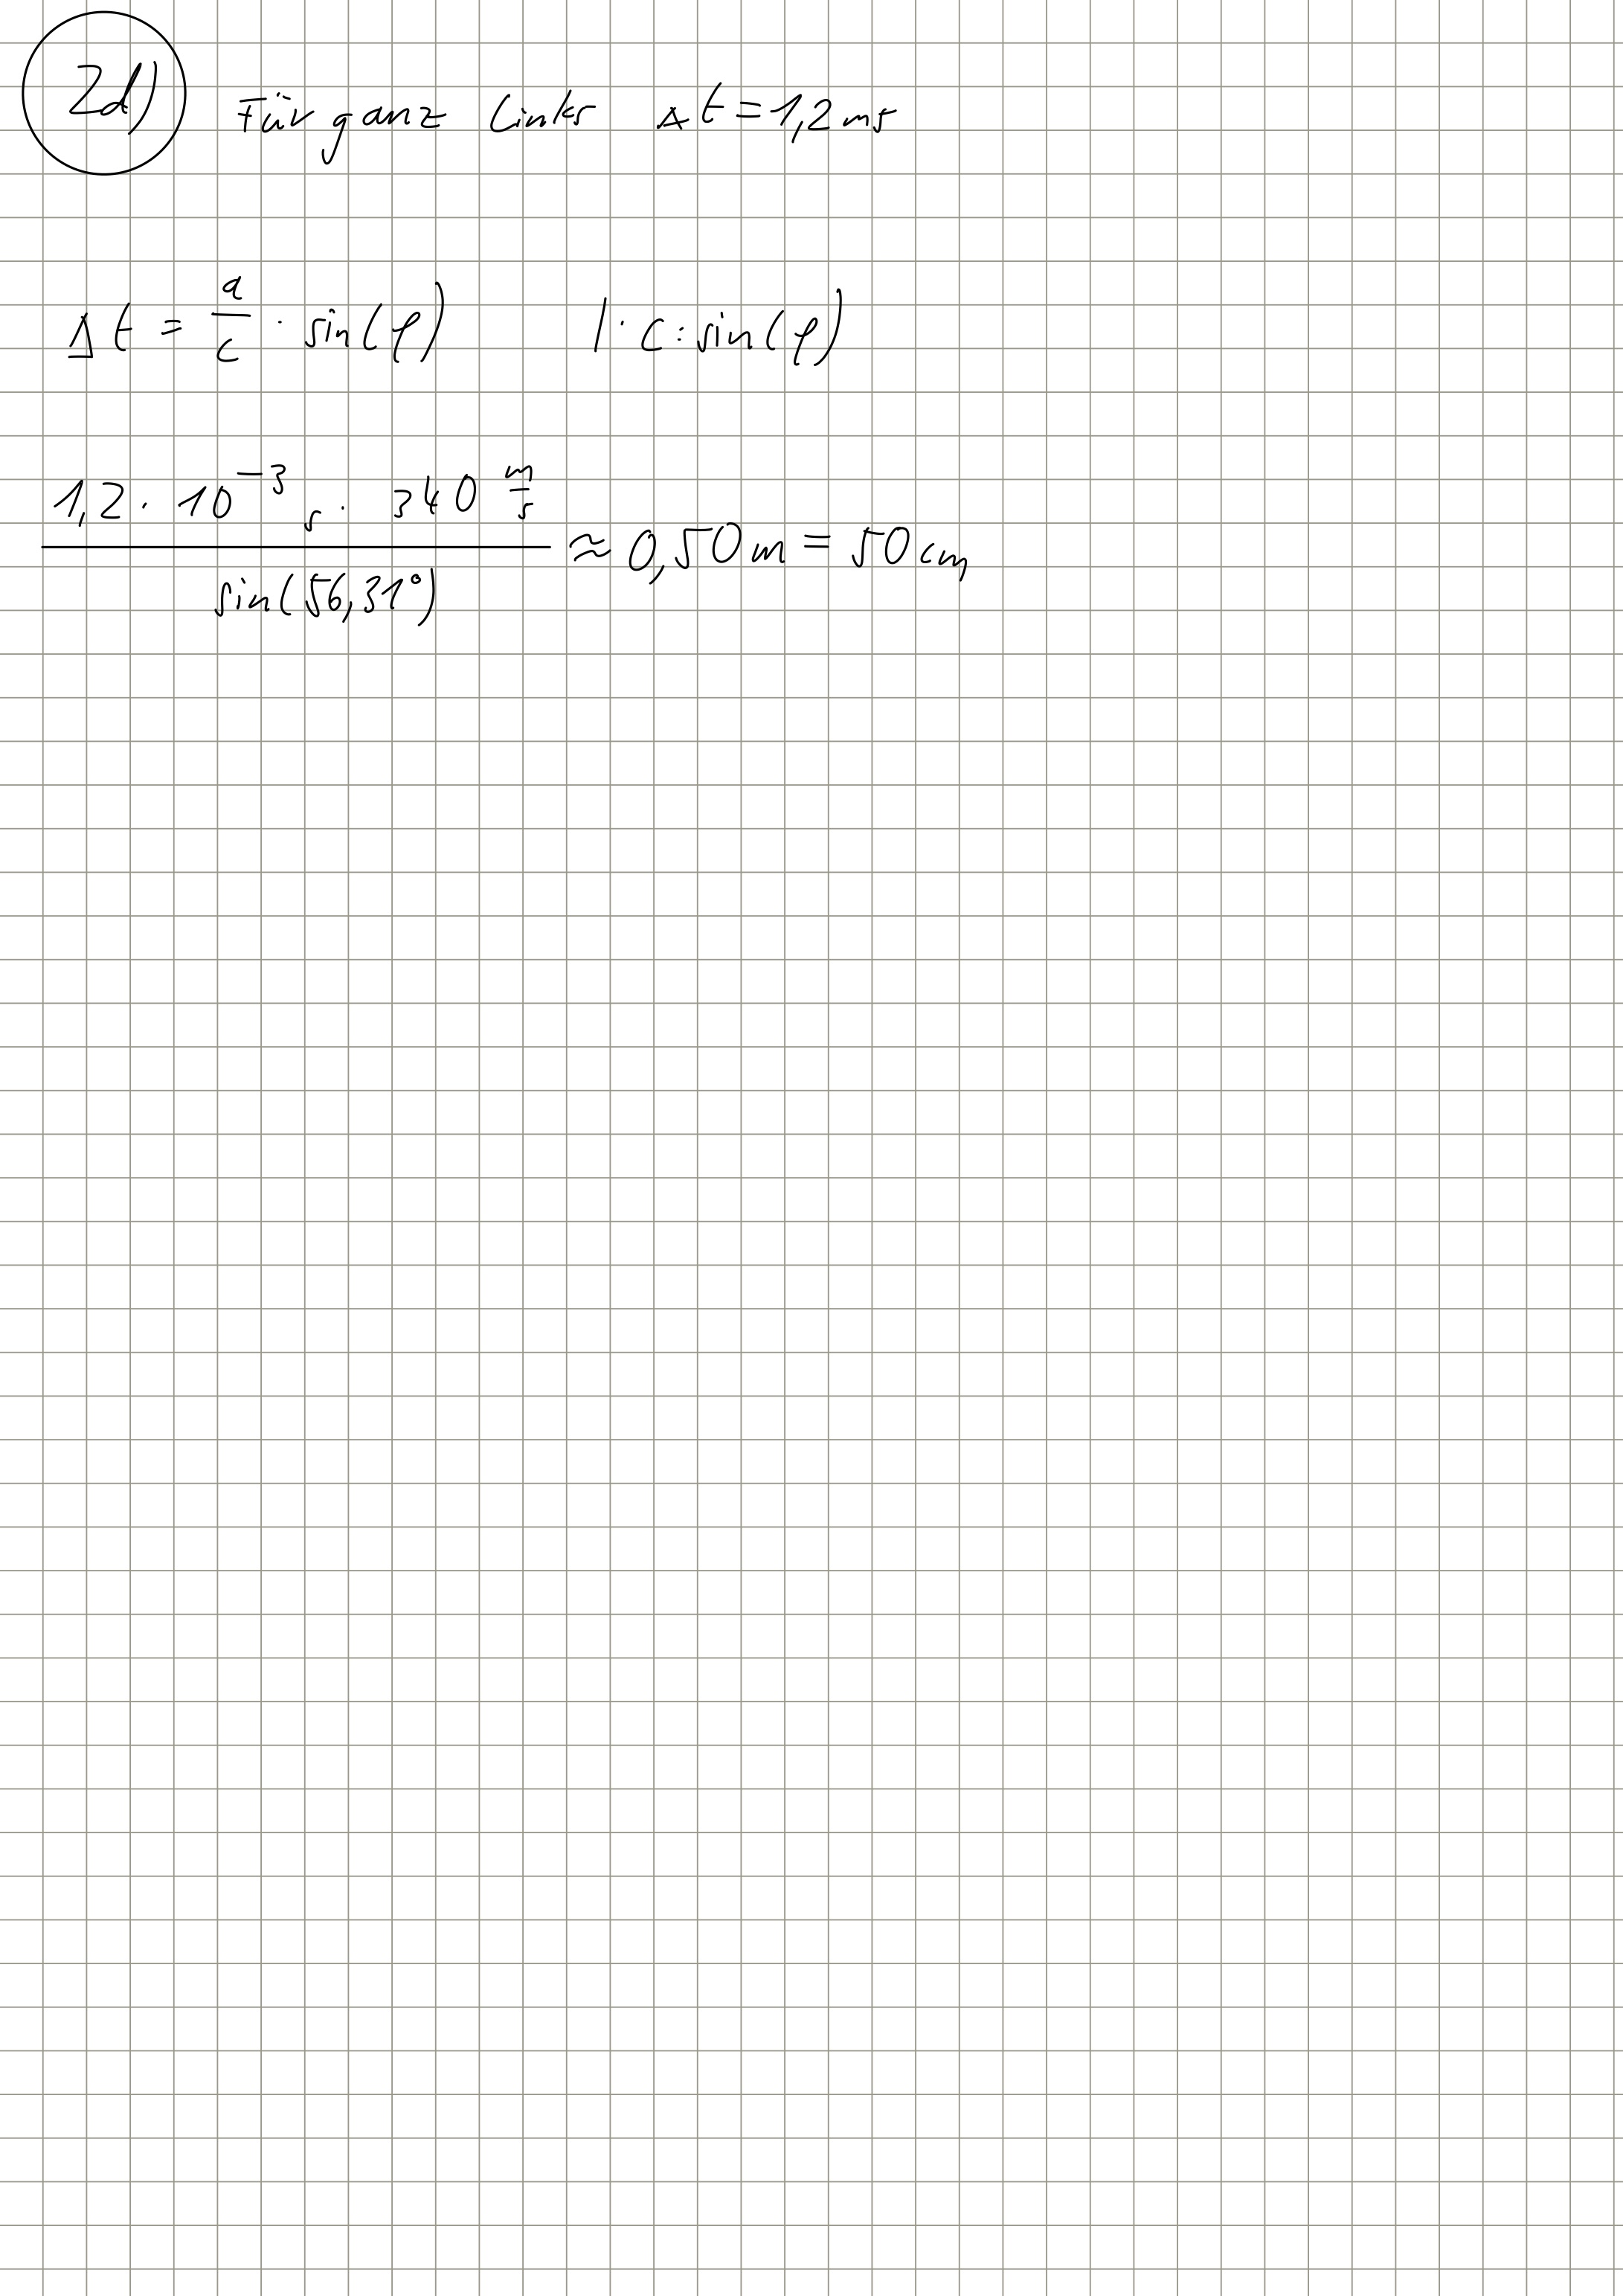 2d) Für ganz links Δt = 1,2 ms
Δt = a/c · sin(φ) |· c : sin(φ)
1,2 · 10⁻³ s · 340 m/s / sin(56,31°) ≈ 0,50 m = 50 cm